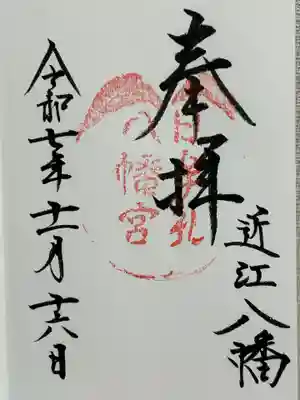 近江八幡
奉拝
日牟礼
八幡宮
令和七年十一月十六日